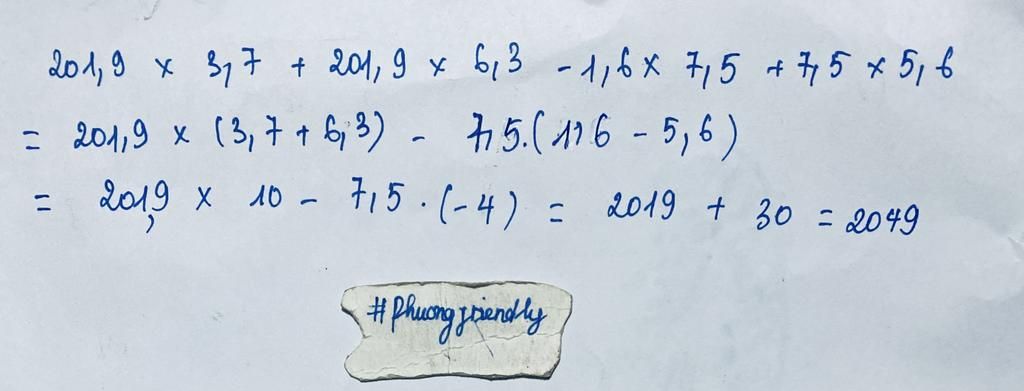 201,9 x 3,7 + 201,9 x 6,3 - 1,6 x 7,5 + 7,5 x 5,6
= 201,9 x (3,7 + 6,3) - 7,5.(1,6 - 5,6)
= 201,9 x 10 - 7,5 . (-4) = 2019 + 30 = 2049
#Phuongfriendly